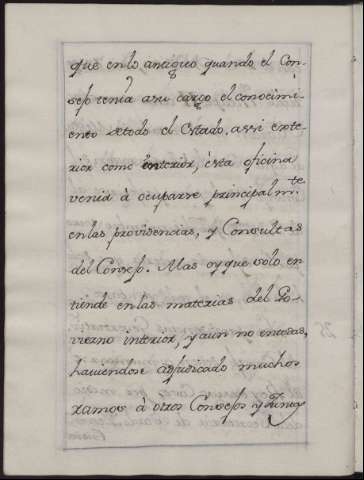 que en lo antiguo quando el Con-
sejo tenia a su cargo el conocimi-
ento de todo el Estado, assi exte-
rior como interior, esta oficina
venia à ocuparse principalm.te
en las providencias, y Consultas
del Consejo. Mas oy que solo en
tiende en las materias del Go-
vierno interior, y aun no en todas,
haviendose adjudicado muchos
ramos à otros Consejos y Juntas